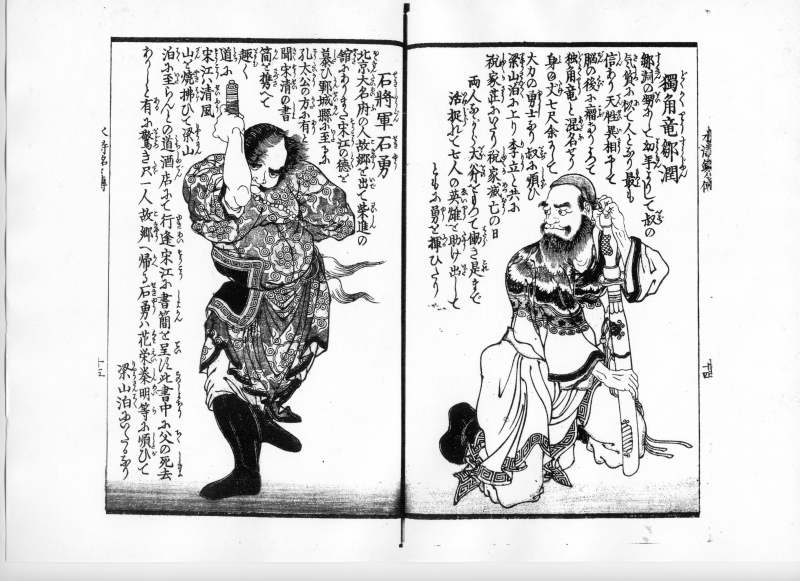 獨角竜鄒潤
鄒淵の甥にして初手より叔の
気質に似て人となり最も
信あり天性異相にして
脳の後に瘤あるをもて
独角竜と混名せり
身の丈七尺余にして
大力の勇士なり叔に順ひ
梁山泊に上り李立と共に
祝家荘に至り祝家滅亡の日
両人おの〳〵大斧をもつて働き是まで
活捉れて七人の英雄を助け出して
ともに勇を揮ひたり
石將軍石勇
北京大名府の人故郷を出て柴進の
館にありまた宋江の徳を
慕ひ鄆城縣に至るに
孔太公の方に有と
聞宋清の書
簡を携へて
趣く
道に
宋江ハ清風
山を焼拂ひて梁山
泊に至らんとの道酒店にて行逢宋江に書簡を呈す此書中に父の死去
ありしと有に驚き只一人故郷へ帰る石勇ハ花栄秦明等に順ひて
梁山泊にいたるなり
十三
廿四